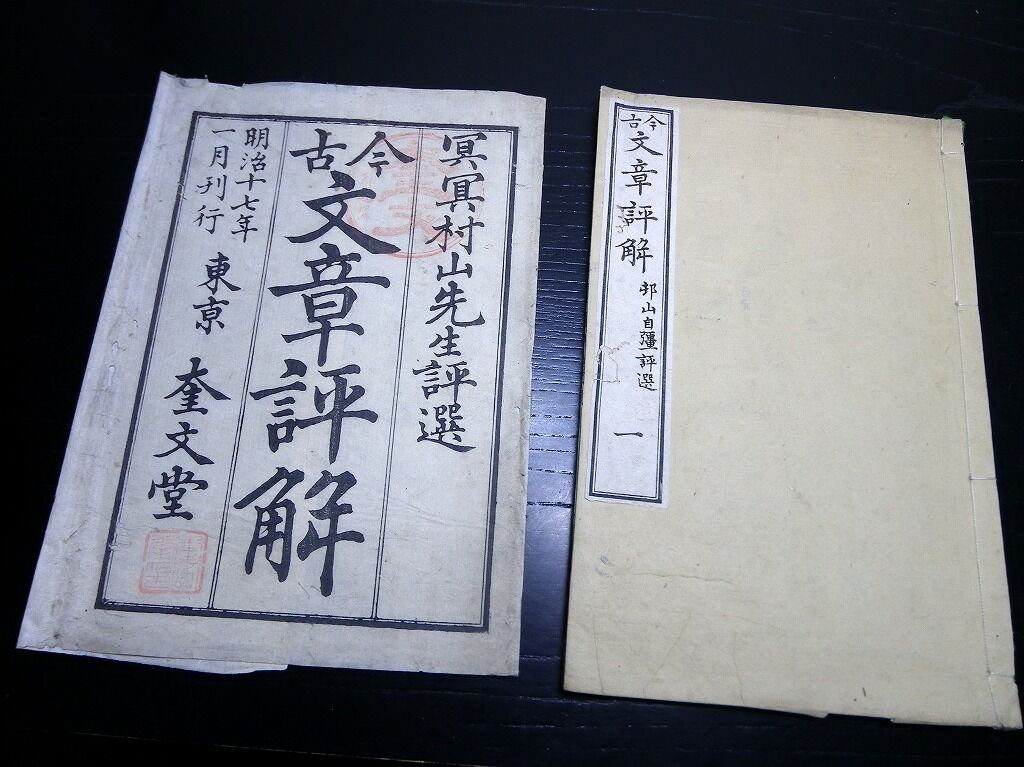 冥冥村山先生評選
今古
文章評解
明治十七年
一月刊行
東京 奎文堂
今古
文章評解
邨山自彊評選
一